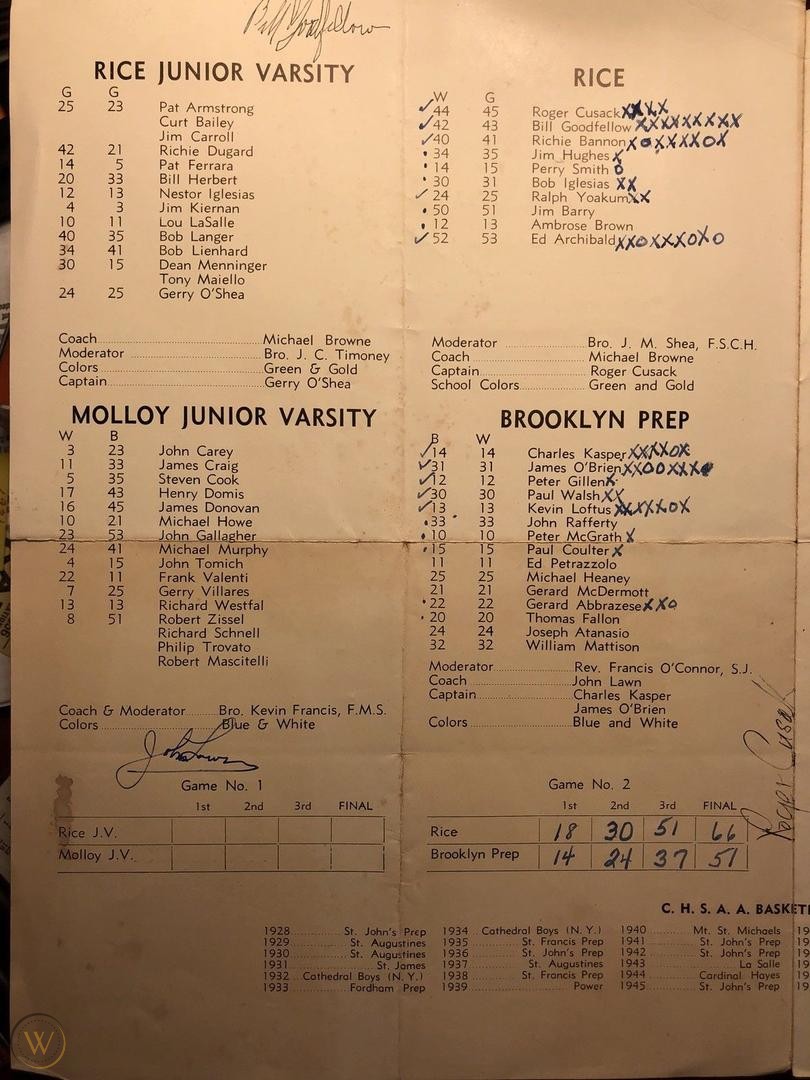 Bill Goodfellow
RICE JUNIOR VARSITY
G G
25 23 Pat Armstrong
Curt Bailey
Jim Carroll
42 21 Richie Dugard
14 5 Pat Ferrara
20 33 Bill Herbert
12 13 Nestor Iglesias
4 3 Jim Kiernan
10 11 Lou LaSalle
40 35 Bob Langer
34 41 Bob Lienhard
30 15 Dean Menninger
Tony Maiello
24 25 Gerry O'Shea
Coach Michael Browne
Moderator Bro. J. C. Timoney
Colors Green & Gold
Captain Gerry O'Shea
RICE
W G
44 45 Roger Cusack XXXX
42 43 Bill Goodfellow XXXXXXXX
40 41 Richie Bannon XOXXXXOX
34 35 Jim Hughes X
14 15 Perry Smith O
30 31 Bob Iglesias XX
24 25 Ralph Yoakum XX
50 51 Jim Barry
12 13 Ambrose Brown
52 53 Ed Archibald XXOXXXOXO
Moderator Bro. J. M. Shea, F.S.C.H.
Coach Michael Browne
Captain Roger Cusack
School Colors Green and Gold
MOLLOY JUNIOR VARSITY
W B
3 23 John Carey
11 33 James Craig
5 35 Steven Cook
17 43 Henry Domis
16 45 James Donovan
10 21 Michael Howe
23 53 John Gallagher
24 41 Michael Murphy
4 15 John Tomich
22 11 Frank Valenti
7 25 Gerry Villares
13 13 Richard Westfal
8 51 Robert Zissel
Richard Schnell
Philip Trovato
Robert Mascitelli
Coach & Moderator Bro. Kevin Francis, F.M.S.
Colors Blue & White
John Lawn
BROOKLYN PREP
B W
14 14 Charles Kasper XXXXOX
31 31 James O'Brien XXOOXXX
12 12 Peter Gillen X
30 30 Paul Walsh XX
13 13 Kevin Loftus XXXXXOX
33 33 John Rafferty
10 10 Peter McGrath X
15 15 Paul Coulter X
11 11 Ed Petrazzolo
25 25 Michael Heaney
21 21 Gerard McDermott
22 22 Gerard Abbrazese XXO
20 20 Thomas Fallon
24 24 Joseph Atanasio
32 32 William Mattison
Moderator Rev. Francis O'Connor, S.J.
Coach John Lawn
Captain Charles Kasper
James O'Brien
Colors Blue and White
Roger Cusack
Game No. 1
1st 2nd 3rd FINAL
Rice J.V.
Molloy J.V.
Game No. 2
1st 2nd 3rd FINAL
Rice 18 30 51 66
Brooklyn Prep 14 24 37 57
C. H. S. A. A. BASKET
1928 St. John's Prep
1929 St. Augustines
1930 St. Augustines
1931 St. James
1932 Cathedral Boys (N. Y.)
1933 Fordham Prep
1934 Cathedral Boys (N. Y.)
1935 St. Francis Prep
1936 St. John's Prep
1937 St. Augustines
1938 St. Francis Prep
1939 Power
1940 Mt. St. Michaels
1941 St. John's Prep
1942 St. John's Prep
1943 La Salle
1944 Cardinal Hayes
1945 St. John's Prep
W